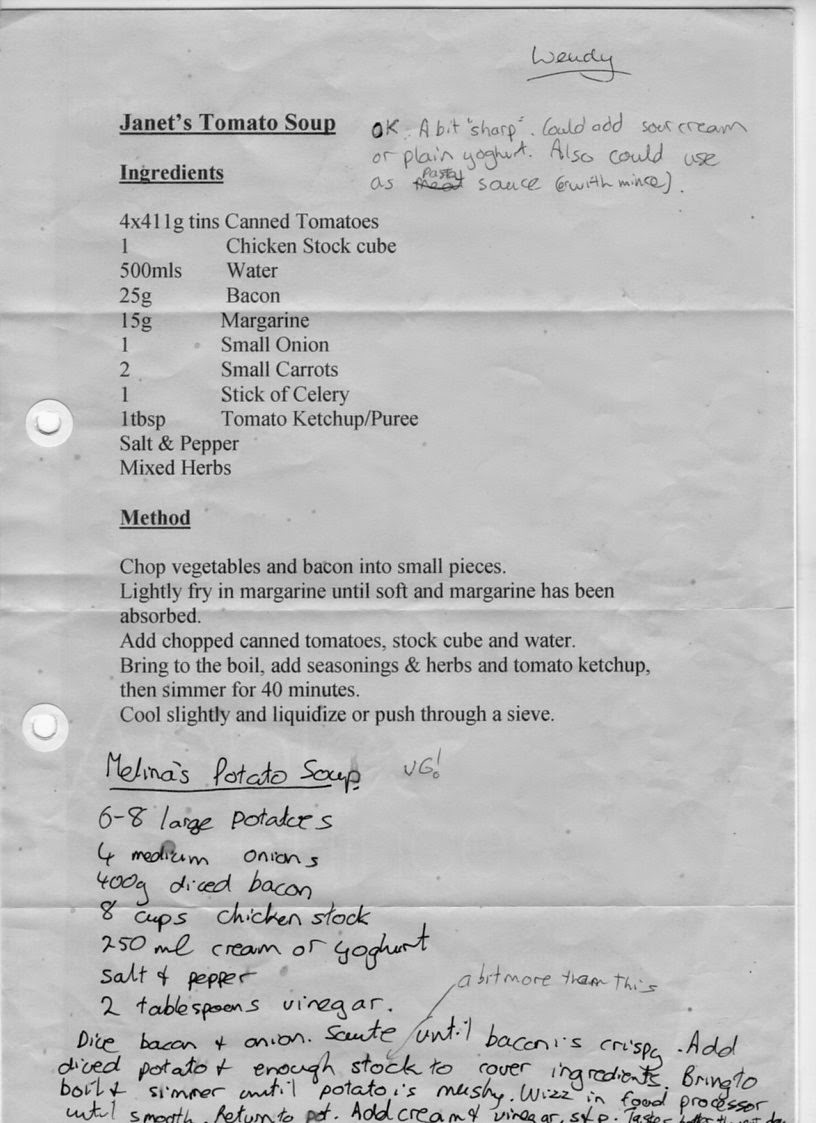 Wendy
Janet's Tomato Soup
OK. A bit "sharp". Could add sour cream
or plain yoghurt. Also could use
as pasta sauce (or with mince).
Ingredients
4x411g tins Canned Tomatoes
1 Chicken Stock cube
500mls Water
25g Bacon
15g Margarine
1 Small Onion
2 Small Carrots
1 Stick of Celery
1tbsp Tomato Ketchup/Puree
Salt & Pepper
Mixed Herbs
Method
Chop vegetables and bacon into small pieces.
Lightly fry in margarine until soft and margarine has been
absorbed.
Add chopped canned tomatoes, stock cube and water.
Bring to the boil, add seasonings & herbs and tomato ketchup,
then simmer for 40 minutes.
Cool slightly and liquidize or push through a sieve.
Melina's Potato Soup VG!
6-8 large potatoes
4 medium onions
400g diced bacon
8 cups chicken stock
250 ml cream or yoghurt
salt & pepper
a bit more than this
2 tablespoons vinegar.
Dice bacon & onion. Saute until bacon is crispy. Add
diced potato & enough stock to cover ingredients. Bring to
boil & simmer until potato is mushy. Wizz in food processor
until smooth. Return to pot. Add cream & vinegar, s & p. Tastes better the next day